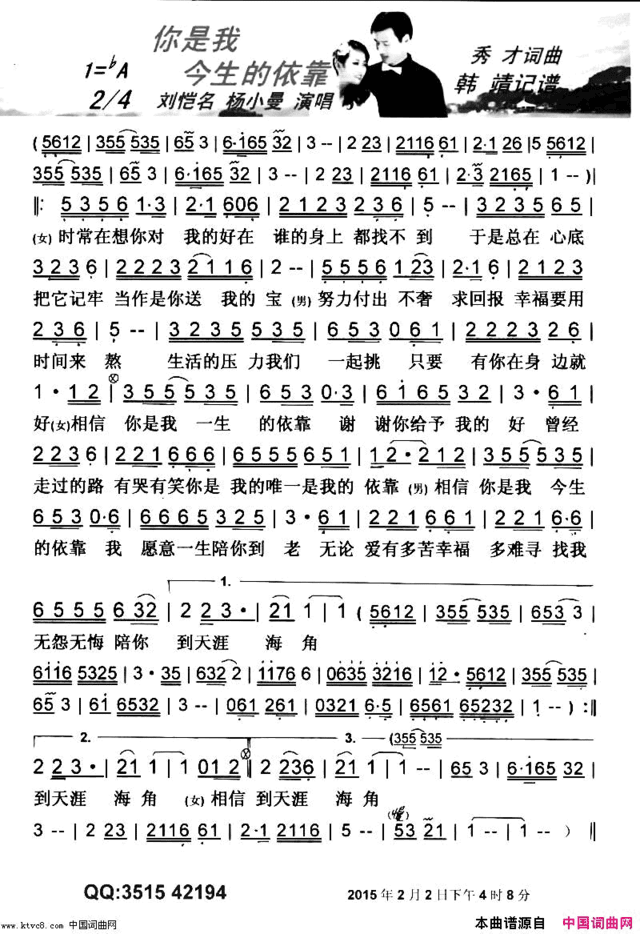 你是我
今生的依靠
1=♭A
2/4
刘恺名 杨小曼 演唱
秀 才词曲
韩 靖记谱
( 5612 | 355 535 | 65 3 | 6·165 32 | 3 -- | 2 23 | 2116 61 | 2·1 26 | 5 5612 |
355 535 | 65 3 | 6·165 32 | 3 -- | 2 23 | 2116 61 | 2·3 2165 | 1 -- )|
‖: 5 3 5 6 1·3 | 2·1 606 | 2 1 2 3 2 3 6 | 5 -- | 3 2 3 5 6 5 |
(女) 时常在想你对 我的好在 谁的身上 都找不 到 于是总在 心底
3 2 3 6 | 2 2 2 3 2 1 1 6 | 2 -- | 5 5 5 6 1 23 | 2·1 6 | 2 1 2 3
把它记牢 当作是你送 我的 宝 (男) 努力付出 不奢 求回报 幸福要用
2 3 6 | 5 -- | 3 2 3 5 5 3 5 | 6 5 3 0 6 1 | 2 2 2 3 2 6 |
时间来 熬 生活的压 力我们 一起挑 只要 有你在身 边就
1 · 1 2 | 3 5 5 5 3 5 | 6 5 3 0·3 | 6 1 6 5 3 2 | 3 · 6 1 |
好(女)相信 你是我 一生 的依靠 谢 谢你给予 我的 好 曾经
2 2 1 2 3 5 | 2 2 1 6 6 6 | 6 5 5 5 6 5 1 | 1 2 · 2 1 2 | 3 5 5 5 3 5 |
走过的路 有哭有笑你是 我的唯一是我的 依靠 (男) 相信 你是我 今生
6 5 3 0·6 | 6 6 6 5 3 2 5 | 3 · 6 1 | 2 2 1 6 6 1 | 2 2 1 6·6 |
的依靠 我 愿意一生陪你到 老 无论 爱有多苦幸福 多难寻 找我
1.
6 5 5 5 6 32 | 2 2 3 · | 21 1 | 1 ( 5612 | 355 535 | 653 3 |
无怨无悔 陪你 到天涯 海 角
6116 5325 | 3 · 35 | 632 2 | 1176 6 | 0635 3216 | 12 · 5612 | 355 535 |
65 3 | 61 6532 | 3 -- | 061 261 | 0321 6·5 | 6561 65232 | 1 -- ) :‖
2. 3. (355 535
2 2 3 · | 21 1 | 1 01 2 ‖ 2 2 36 | 21 1 | 1 -- | 65 3 | 6·165 32 |
到天涯 海 角 (女) 相信 到天涯 海 角
3 -- | 2 23 | 2116 61 | 2·1 2116 | 5 -- | 53 21 | 1 -- | 1 -- ) ‖
QQ:3515 42194
2015年2月2日下午4时8分
www.ktvc8.com 中国词曲网
本曲谱源自 中国词曲网